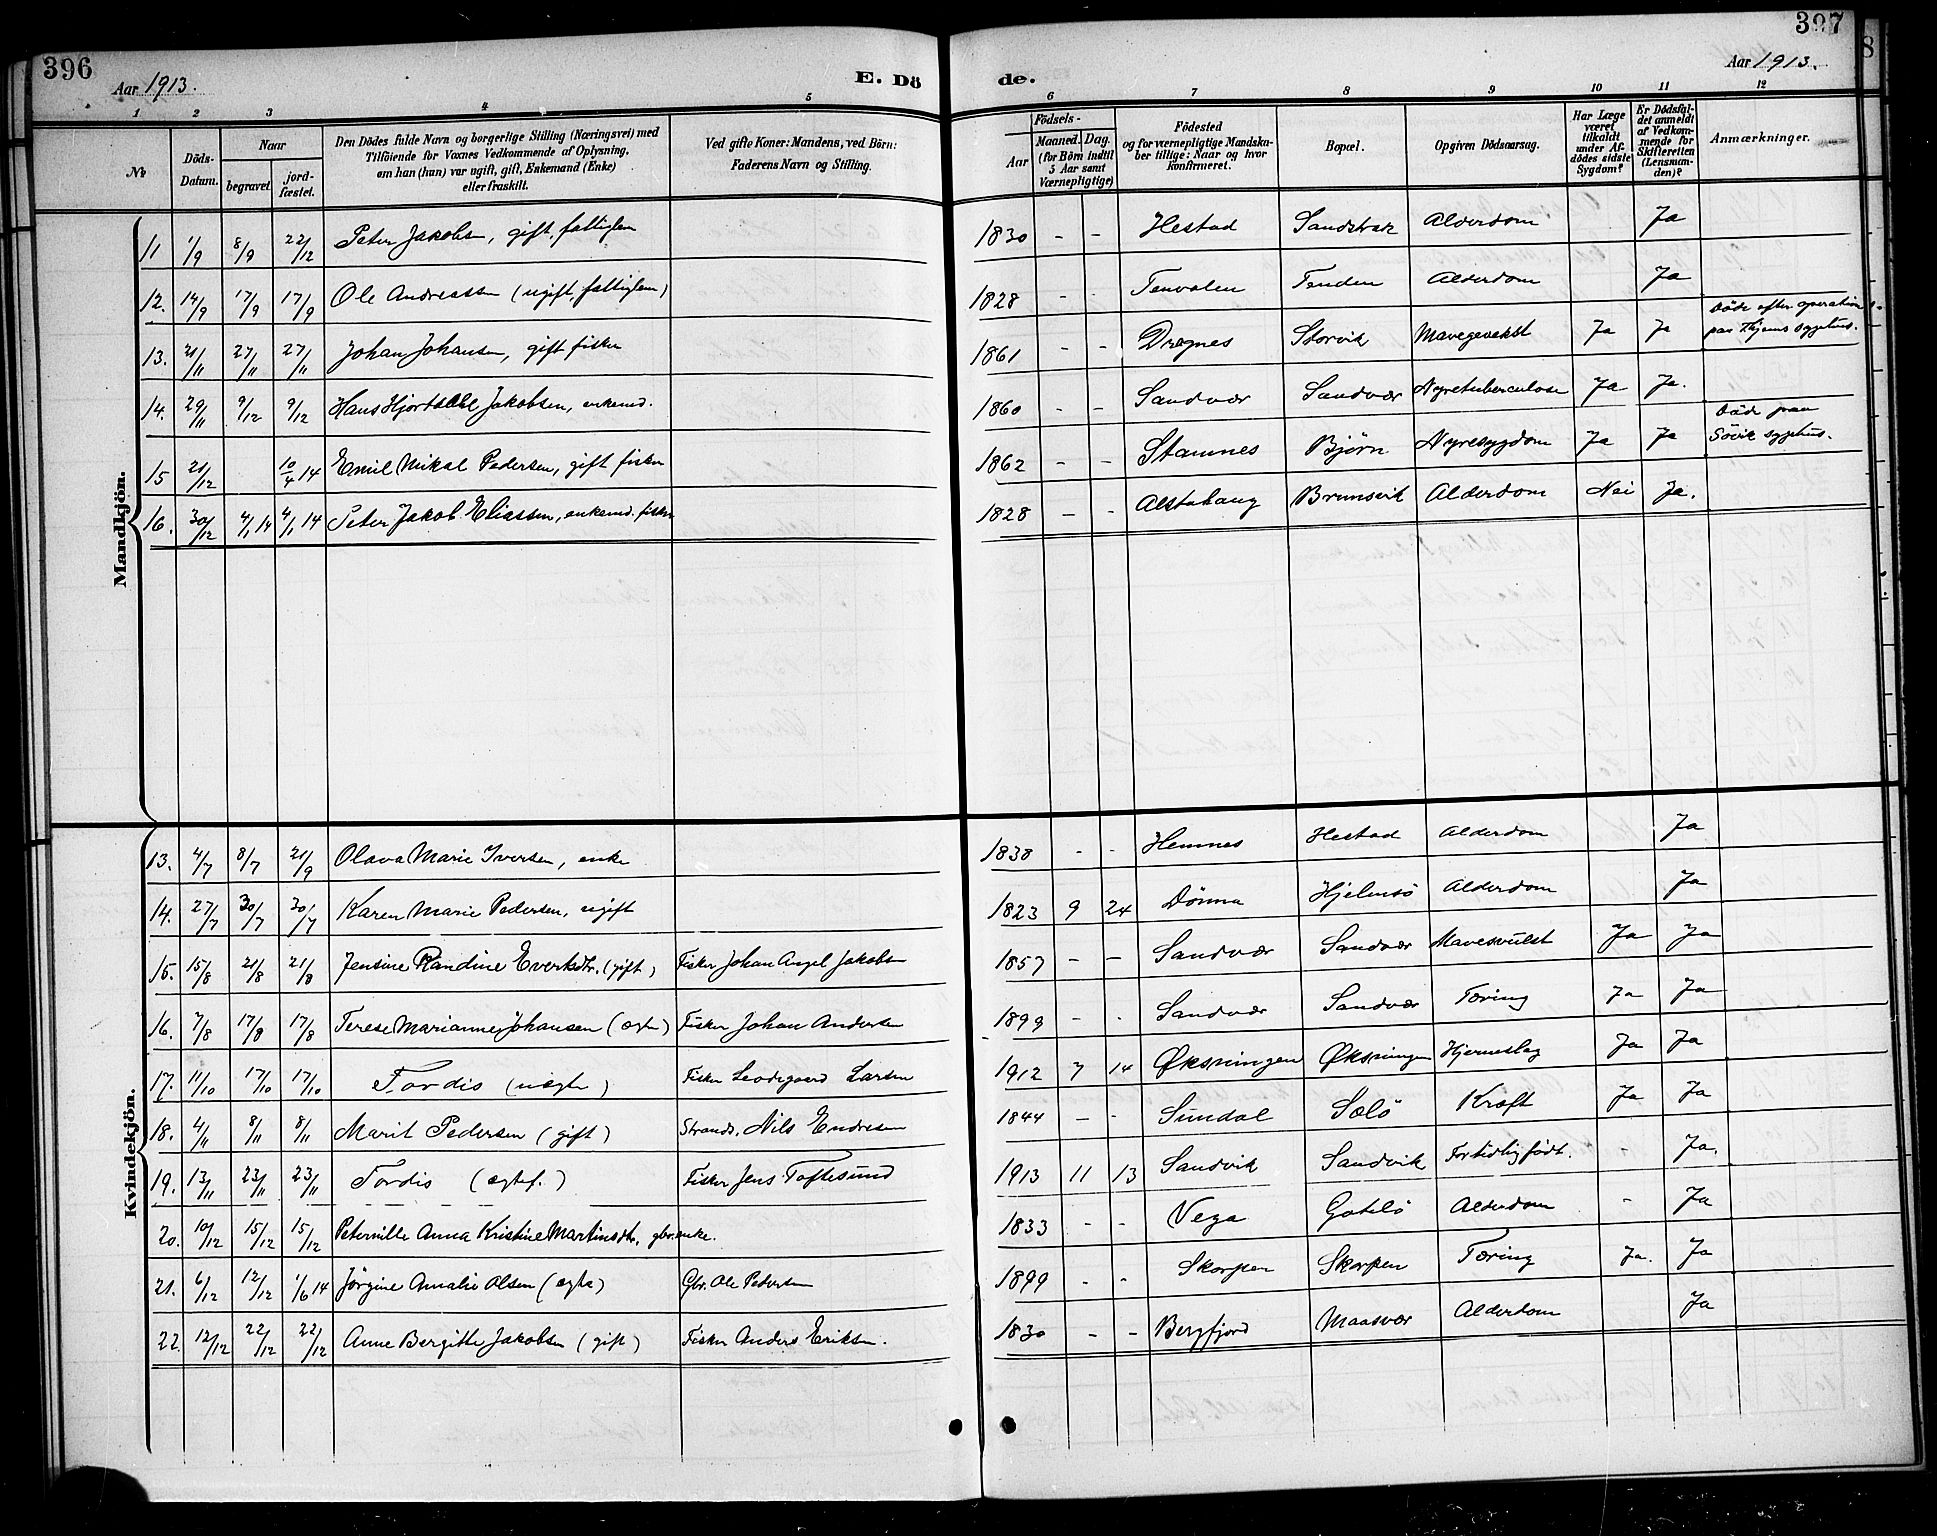 396
Aar 1913.
E. Dö
1 2 3 4 5
№ | Döds-Datum. | Naar begravet | jord-fæstet. | Den Dödes fulde Navn og borgerlige Stilling (Næringsvei) med Tilföiende for Voxnes Vedkommende af Oplysning, om han (hun) var ugift, gift, Enkemand (Enke) eller fraskilt. | Ved gifte Koner: Mandens, ved Börn: Faderens Navn og Stilling.
Mandkjön.
11 | 1/9 | 8/9 | 22/12 | Peter Jakobsen, gift, fattiglem
12. | 14/9 | 17/9 | 17/9 | Ole Andreassen (ugift, fattiglem)
13. | 21/11 | 27/11 | 27/11 | Johan Johansen, gift fisker
14. | 29/11 | 9/12 | 9/12 | Hans Hjortdahl Jakobsen, enkemd.
15 | 21/12 | | 10/4 14 | Emil Mikal Pedersen, gift fisker
16. | 30/12 | 4/1 14 | 4/1 14 | Peter Jakob Eliassen, enkemd. fisker
Kvindekjön.
13. | 4/7 | 8/7 | 21/9 | Olava Marie Iversen, enke
14. | 27/7 | 30/7 | 30/7 | Karen Marie Pedersen, ugift
15. | 15/8 | 21/8 | 21/8 | Jensine Randine Evertsdtr. (gift) | Fisker Johan Angel Jakobsen
16. | 7/8 | 17/8 | 17/8 | Terese Marianne Johansen (ægte) | Fisker Johan Andersen
17. | 11/10 | 17/10 | 17/10 | Tordis (uægte) | Fisker Leodegaard Larsen
18. | 4/11 | 8/11 | 8/11 | Marit Pedersen (gift) | Strands. Nils Endresen
19. | 13/11 | 23/11 | 23/11 | Tordis (ægtef.) | Fisker Jens Toftesund
20. | 10/12 | 15/12 | 15/12 | Peternille Anna Kristine Martinsdtr, gbr.enke.
21. | 6/12 | 12/12 | 1/6 14 | Jörgine Amalie Olsen (ægte) | Gbr. Ole Pedersen
22. | 12/12 | 22/12 | 22/12 | Anne Bergitte Jakobsen (gift) | Fisker Anders Eriksen.
397
8
de.
Aar 1913.
6 7 8 9 10 11 12
Födsels- Aar | Maaned. | Dag. (for Börn indtil 5 Aar samt Værnepligtige) | Födested og for værnepligtige Mandskaber tillige: Naar og hvor konfirmeret. | Bopæl. | Opgiven Dödsaarsag. | Har Læge været tilkaldt under Afdödes sidste Sygdom? | Er Dödsfaldet anmeldt af Vedkommende for Skifteretten (Lensmanden)? | Anmærkninger.
1830 | - | - | Hestad | Sandstrak | Alderdom | | Ja
1828 | - | - | Tenvalen | Tenden | Alderdom | | Ja
1861 | - | - | Dregnes | Storvik | Mavegevekst | Ja | Ja | Døde efter operation paa Thjems sygehus.
1860 | - | - | Sandvær | Sandvær | Nyretuberculose | Ja | Ja.
1862 | - | - | Stamnes | Bjørn | Nyresygdom | Ja | Ja | Död paa Sövik sygehus.
1828 | - | - | Alstahaug | Brunsvik | Alderdom | Nei | Ja.
1838 | - | - | Hemnes | Hestad | Alderdom | | Ja
1823 | 9 | 24 | Dönna | Hjelmsö | Alderdom | | Ja
1857 | - | - | Sandvær | Sandvær | Mavesvulst | Ja | Ja
1899 | - | - | Sandvær | Sandvær | Tæring | Ja | Ja
1912 | 7 | 14 | Øksningen | Øksningen | Hjerneslag | Ja | Ja
1844 | - | - | Sundal | Sælö | Kræft | Ja | Ja
1913 | 11 | 13 | Sandvik | Sandvik | For tidlig födt. | - | Ja.
1833 | - | - | Vega | Gatslö | Alderdom | - | Ja
1899 | - | - | Skorpen | Skorpen | Tæring | Ja. | Ja
1830 | - | - | Bergfjord | Maasvær | Alderdom | | Ja